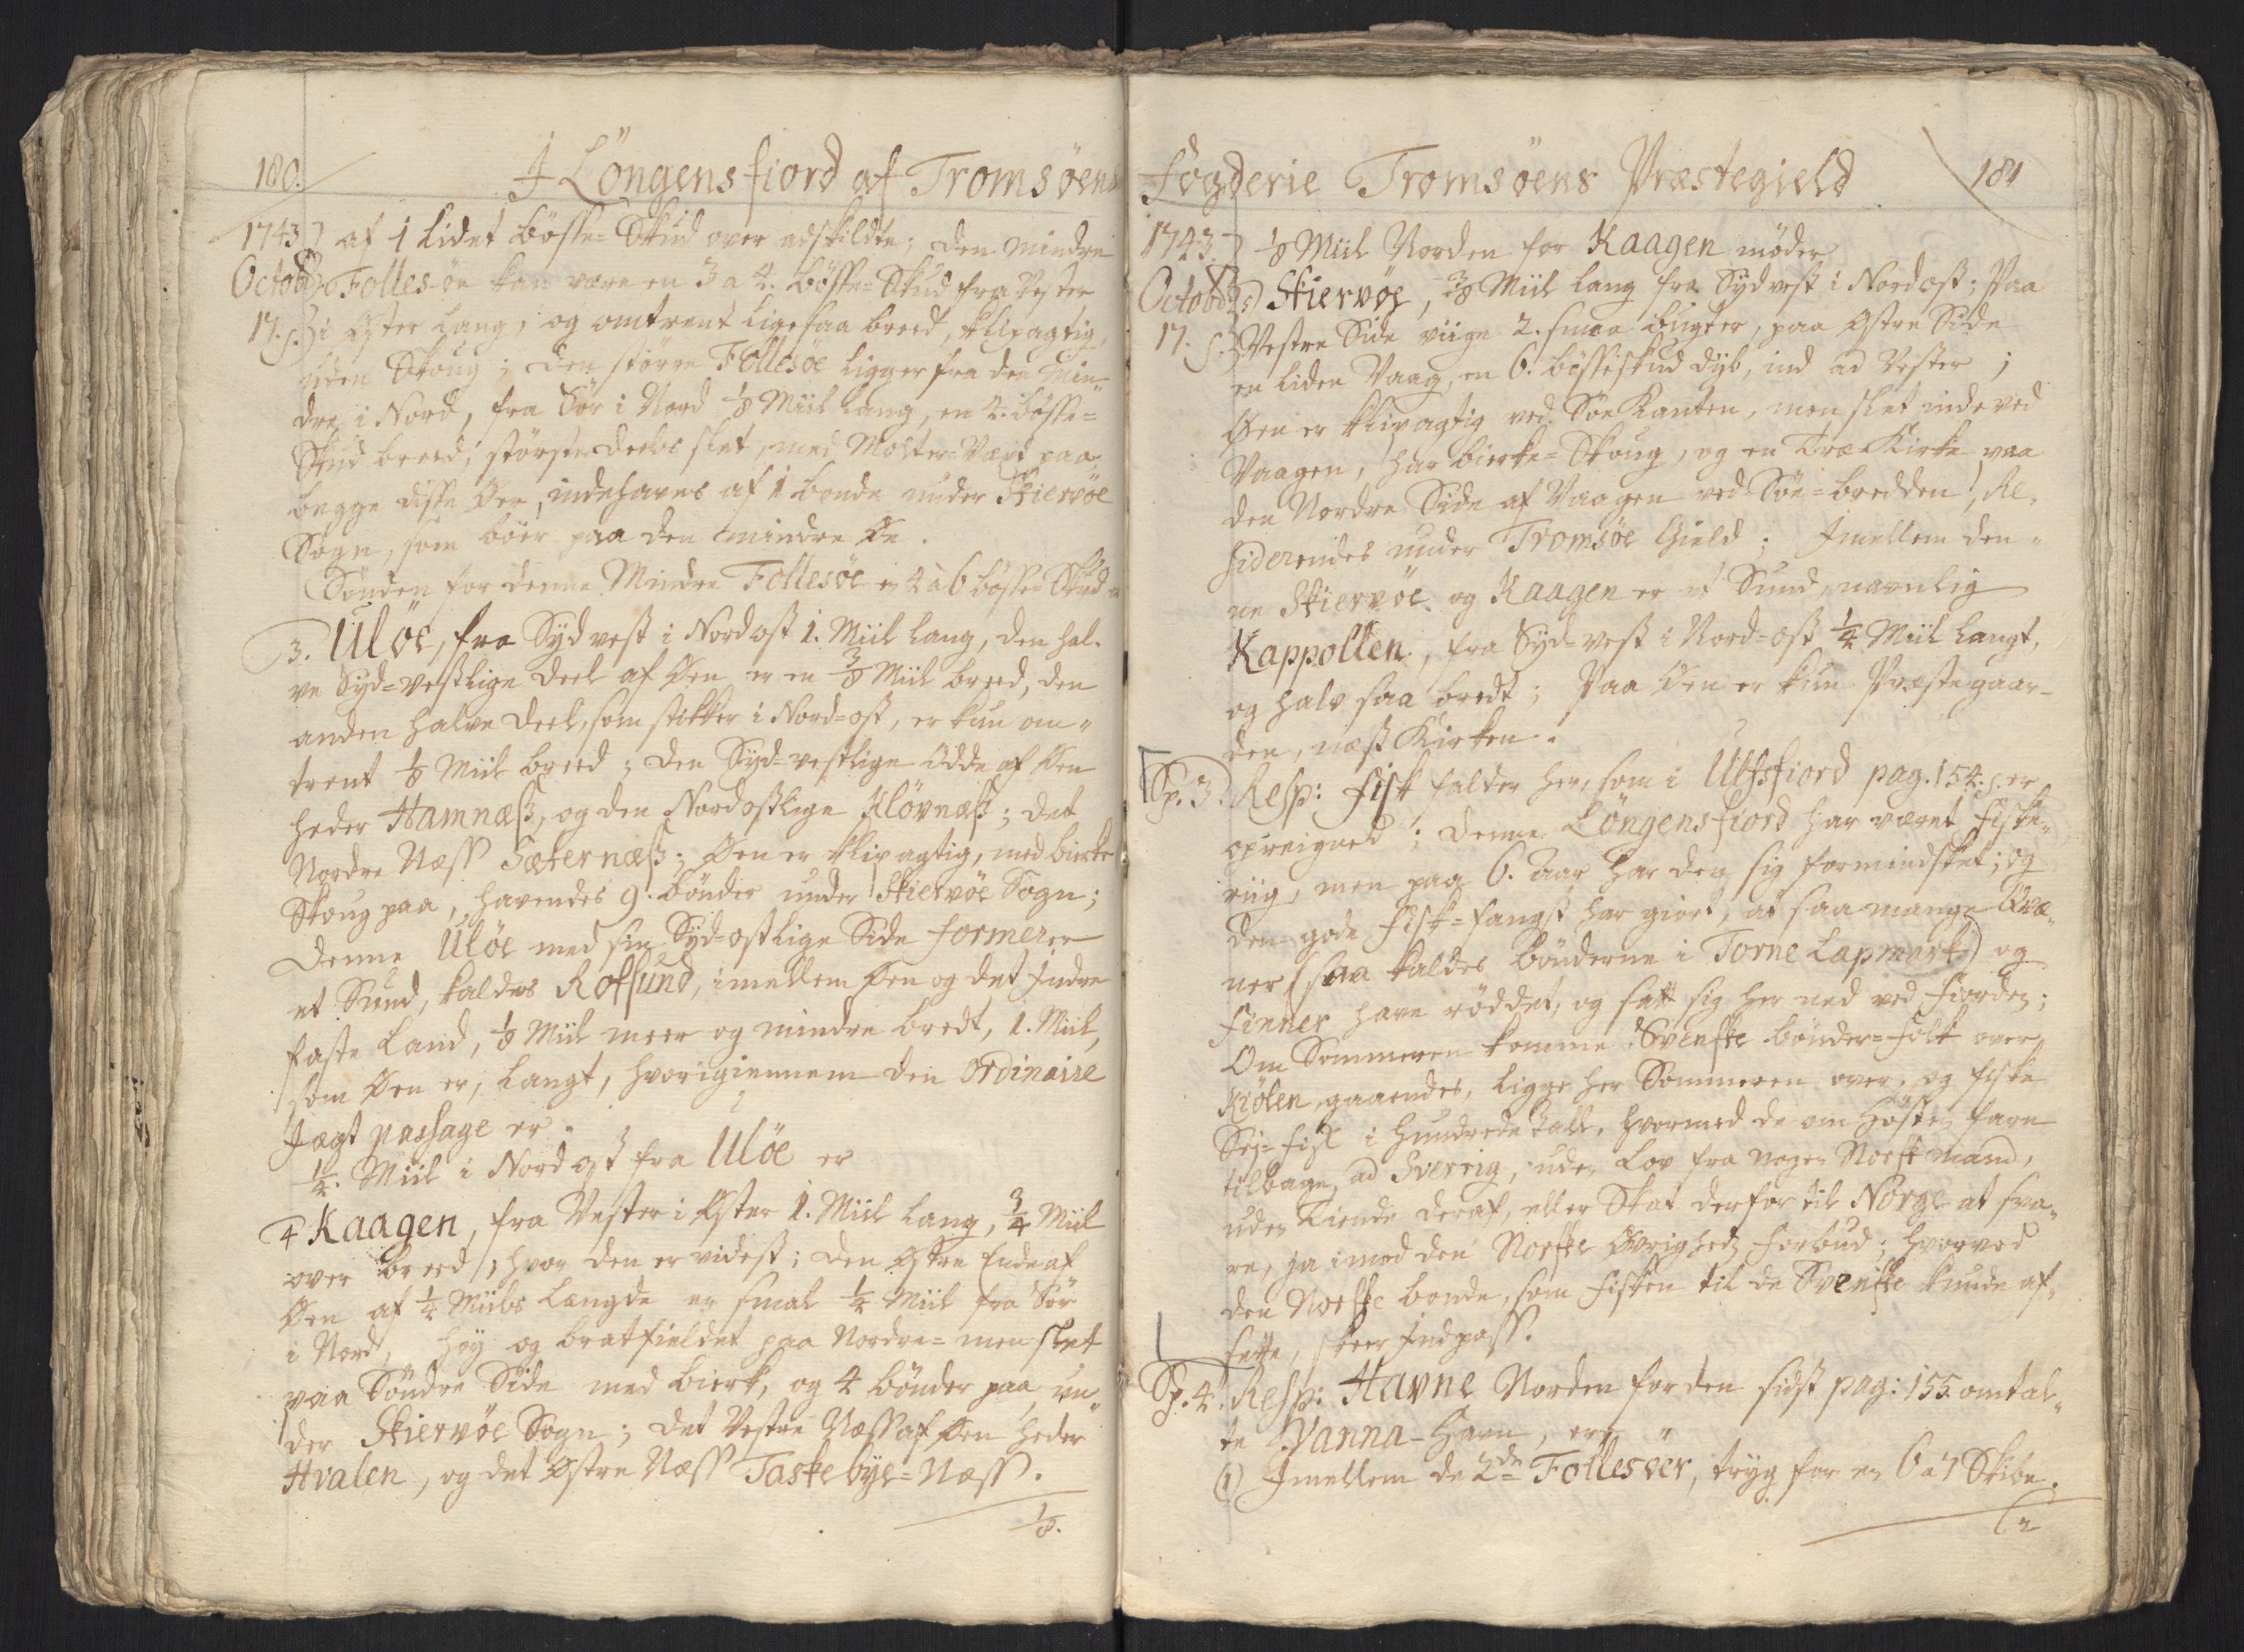 180.
I Löngensfiord af Tromsöens
1743 af 1 lidet bösse-Skud over adskildte; den mindre
Octobr Follesöe kan være en 3 a 4. bösse-Skud fra Vester
17. s. i Øster lang, og omtrent ligesaa breed, klipagtig,
uden Skoug; den större Follesöe ligger fra den min-
dre i Nord, fra Sör i Nord 1/8 Miil lang, en 4. bösse-
Skud breed, störstedeels slet, med Molter-Vext paa
begge disse Øer, indehaves af 1 bonde under Skiervöe
Sogn, som böer paa den mindre Øe.
Sönden for denne Mindre Follesöe en 4 à 6 bösse-Skud er
3. Ulöe, fra Sydvest i Nordost 1. Miil lang, den hal-
ve Syd-vestlige deel af Øen er en 3/8 Miil breed, den
anden halve deel, som stikker i Nord-ost, er kun om-
trent 1/8 Miil breed; den Syd-vestlige Odde af Øen
heder Hamnæss, og den Nordostlige Klövnæss; det
Nordre Næss Sæternæss; Øen er klipagtig, med bierke
Skoug paa, havendes 9. bönder under Skiervöe Sogn;
Denne Ulöe med sin Syd-ostlige Side formerer
et Sund, kaldes Rotsund, imellem Øen og det Indre
faste Land, 1/8 Miil meer og mindre bredt, 1. Miil,
som Øen er, langt, hvorigiennem den ordinaire
Jægt passage er.
1/2. Miil i Nordost fra Ulöe er
4 Kaagen, fra Vester i Øster 1. Miil lang, 3/4 Miil
over breed, hvor den er videst; den Østre Ende af
Øen af 1/4 Miils Længde er smal 1/4 Miil fra Sör
i Nord, höy og bratfieldet paa Nordre- men slet
paa Söndre Side med bierk, og 4 bönder paa, un-
der Skiervöe Sogn; det Vestre Næss af Øen heder
Hvalen, og det Østre Næss Taskebye-Næss.
1/8.
Fogderie Tromsöens Præstegield
181
1743. 1/8 Miil Norden for Kaagen möder
Octobr 5) Skiervöe, 3/8 Miil lang fra Sydvest i Nordost; Paa
17. s. Vestre Side viige 2. smaa bugter, paa Østre Side
en liden Vaag, en 6. bösseskud dyb, ind ad Vester;
Øen er klipagtig ved SöeKanten, men slet inde ved
Vaagen, har bierke-Skoug, og en Træ Kirke paa
den Nordre Side af Vaagen ved Söe-bredden, Re-
siderendes under Tromsöe Gield; Imellem den-
ne Skiervöe og Kaagen er et Sund, navnlig
Kappollen, fra Syd-vest i Nord-ost 1/4 Miil langt,
og halv saa bredt; Paa Øen er kun Præstegaar-
den, næst Kirken.
Sp. 3. Resp: Fisk falder her, som i Ulfsfiord pag. 154. s. er
opreignet; Denne Löngensfiord har været fiske-
riig, men paa 6. Aar har den sig formindsket; og
den gode Fisk-fangst har giort, at saa mange Qvæ-
ner (saa kaldes bönderne i Torne Lapmark) og
Finner have röddet, og satt sig her ned ved Fiorden;
Om Sommeren komme Svenske bönder-folk over
Kiölen gaaendes, ligge her Sommeren over, og fiske
Sej-Fisk i hundrede Tall, hvormed de om Hösten fare
tilbage ad Sverrig, uden Lov fra nogen Norsk mand,
uden Tiende deraf, eller Skat derfor til Norge at sva-
re, ja imod den Norske Øvrigheds forbud; hvorved
den Norske bonde, som fisken til de Svenske kunde af-
sette, skeer Indpass.
Sp. 4. Resp: Havne Norden for den sidst pag: 155 omtal-
te Vanna-Havn, ere
1) Imellem de 2de Follesöer, tryg for en 6 a 7 Skibe.